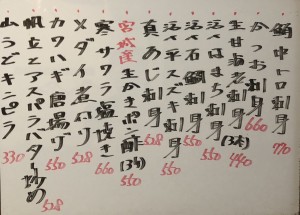 鮪中トロ刺身 770
かつお刺身 660
生甘海老刺身(3本) 440
活〆はまち刺身 550
活〆石鯛刺身 550
活〆スズキ刺身 550
真あじ刺身 528
宮城産生かきポン酢(3ヶ) 550
寒サワラ塩焼き 660
メダイ煮付け 528
カワハギ唐揚げ 550
帆立とアスパラバター炒め 528
山うどキンピラ 330